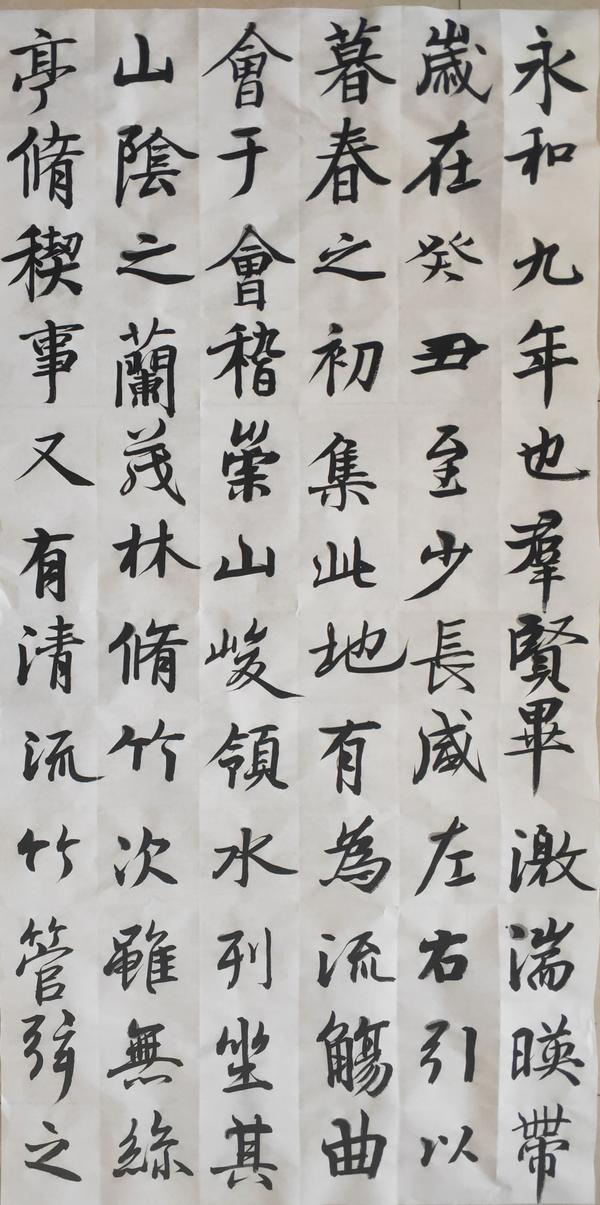 永和九年
歲在癸丑
暮春之初
會于會稽
山陰之蘭
亭脩稧事
也羣賢畢
至少長咸
集此地有
崇山峻領
茂林脩竹
又有清流
激湍暎帶
左右引以
為流觴曲
水列坐其
次雖無絲
竹管弦之